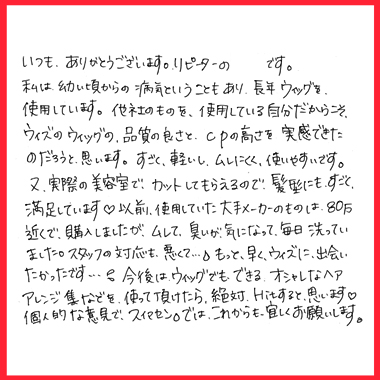 いつも、ありがとうございます。リピーターの　　です。
私は、幼い頃からの病気ということもあり、長年ウィッグを、
使用しています。他社のものを、使用している自分だからこそ、
ウィズのウィッグの、品質の良さと、cpの高さを実感できた
のだろうと、思います。すごく、軽いし、ムレにくく、使いやすいです。
又、実際の美容室で、カットしてもらえるので、髪型にも、すごく、
満足しています♡以前、使用していた大手メーカーのものは、80万
近くで、購入しましたが、ムレて、臭いが、気になって、毎日洗ってい
ました。スタッフの対応も、悪くて…。もっと、早く、ウィズに、出会い
たかったです…。今後は、ウィッグでも、できる、オシャレなヘア
アレンジ集などを、使って頂けたら、絶対、Hitすると、思います♡
個人的な意見で、スイマセン。では、これからも、宜しくお願いします。